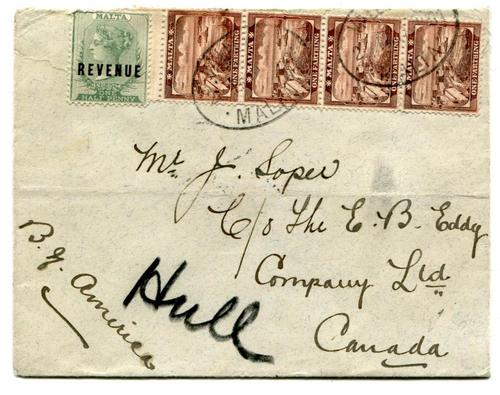 MALTA
REVENUE
ONE
HALF PENNY
MALTA
ONE FARTHING
MALTA
ONE FARTHING
MALTA
ONE FARTHING
MALTA
ONE FARTHING
MAL
Mr. J. Soper
C/o The E. B. Eddy
Company Ltd
Canada
B. J. America
Hull